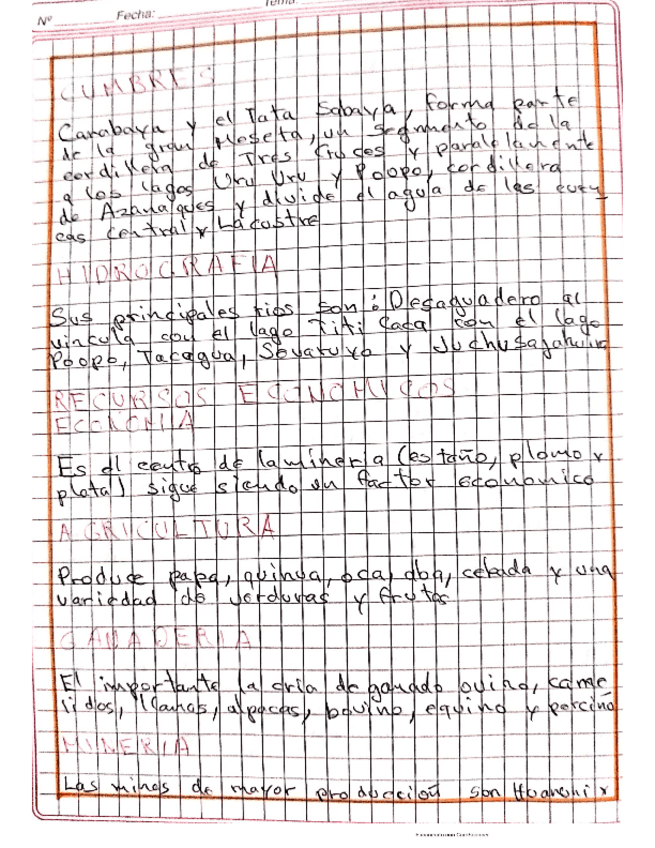 Nº Fecha: Tema:
CUMBRES
Carabaya y el Tata Sabaya, forma parte
de la gran Meseta, un segmento de la
cordillera de Tres Cruces y paralelamente
a los lagos Uru Uru y Poopo, cordillera
de Azanaques y divide el agua de las cuen
cas central y Lacustre
HIDROGRAFIA
Sus principales rios son: Desaguadero al
vincula con el lago Titi Caca con el lago
Poopo, Tacagua, Sevaruyo y
RECURSOS ECONOMICOS
ECONOMIA
Es el centro de la mineria (estaño, plomo y
plata) sigue siendo un factor economico
AGRICULTURA
Produce papa, quinua, oca, aba, cebada y una
variedad de verduras y frutas
GANADERIA
El importante la cria de ganado ovino, came
lidos, llamas, alpacas, bovino, equino y porcino
MINERIA
Las minas de mayor produccion son